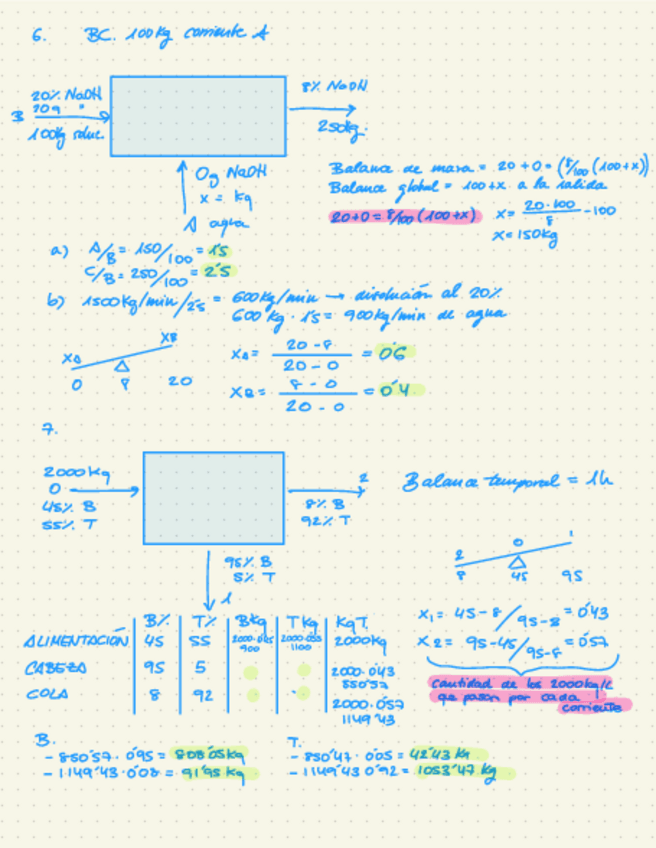 6. BC. 100Kg corriente A
20% NaOH
20g "
B
100Kg soluc.
8% NaOH
250kg.
0g NaOH
x = kg
A agua
Balance de masa = 20 + 0 = (8/100 (100+x))
Balance global = 100+x a la salida
20+0 = 8/100 (100+x)
x = 20·100/8 - 100
x = 150kg
a) A/B = 150/100 = 1'5
C/B = 250/100 = 2'5
b) 1500Kg/min/2'5 = 600Kg/min → disolución al 20%
600 Kg · 1'5 = 900Kg/min de agua
XA XB
0 8 20
XA = 20 - 8 / 20 - 0 = 0'6
XB = 8 - 0 / 20 - 0 = 0'4
7.
2000Kg
0
45% B
55% T
2
8% B
92% T
95% B
5% T
1
Balance temporal = 1h
2 0 1
8 45 95
X1 = 45-8/95-8 = 0'43
X2 = 95-45/95-8 = 0'57
cantidad de los 2000kg/h
que pasan por cada
corriente
B% T% BKg TKg KgT
ALIMENTACIÓN 45 55 2000·0'45 900 2000·0'55 1100 2000Kg
CABEZA 95 5 2000·0'43 850'57
COLA 8 92 2000·0'57 1149'43
B.
- 850'57 · 0'95 = 808'05kg
- 1149'43·0'08 = 91'95 Kg
T.
- 850'47 · 0'05 = 42'43 Kg
- 1149'43 0'92 = 1053'47 Kg